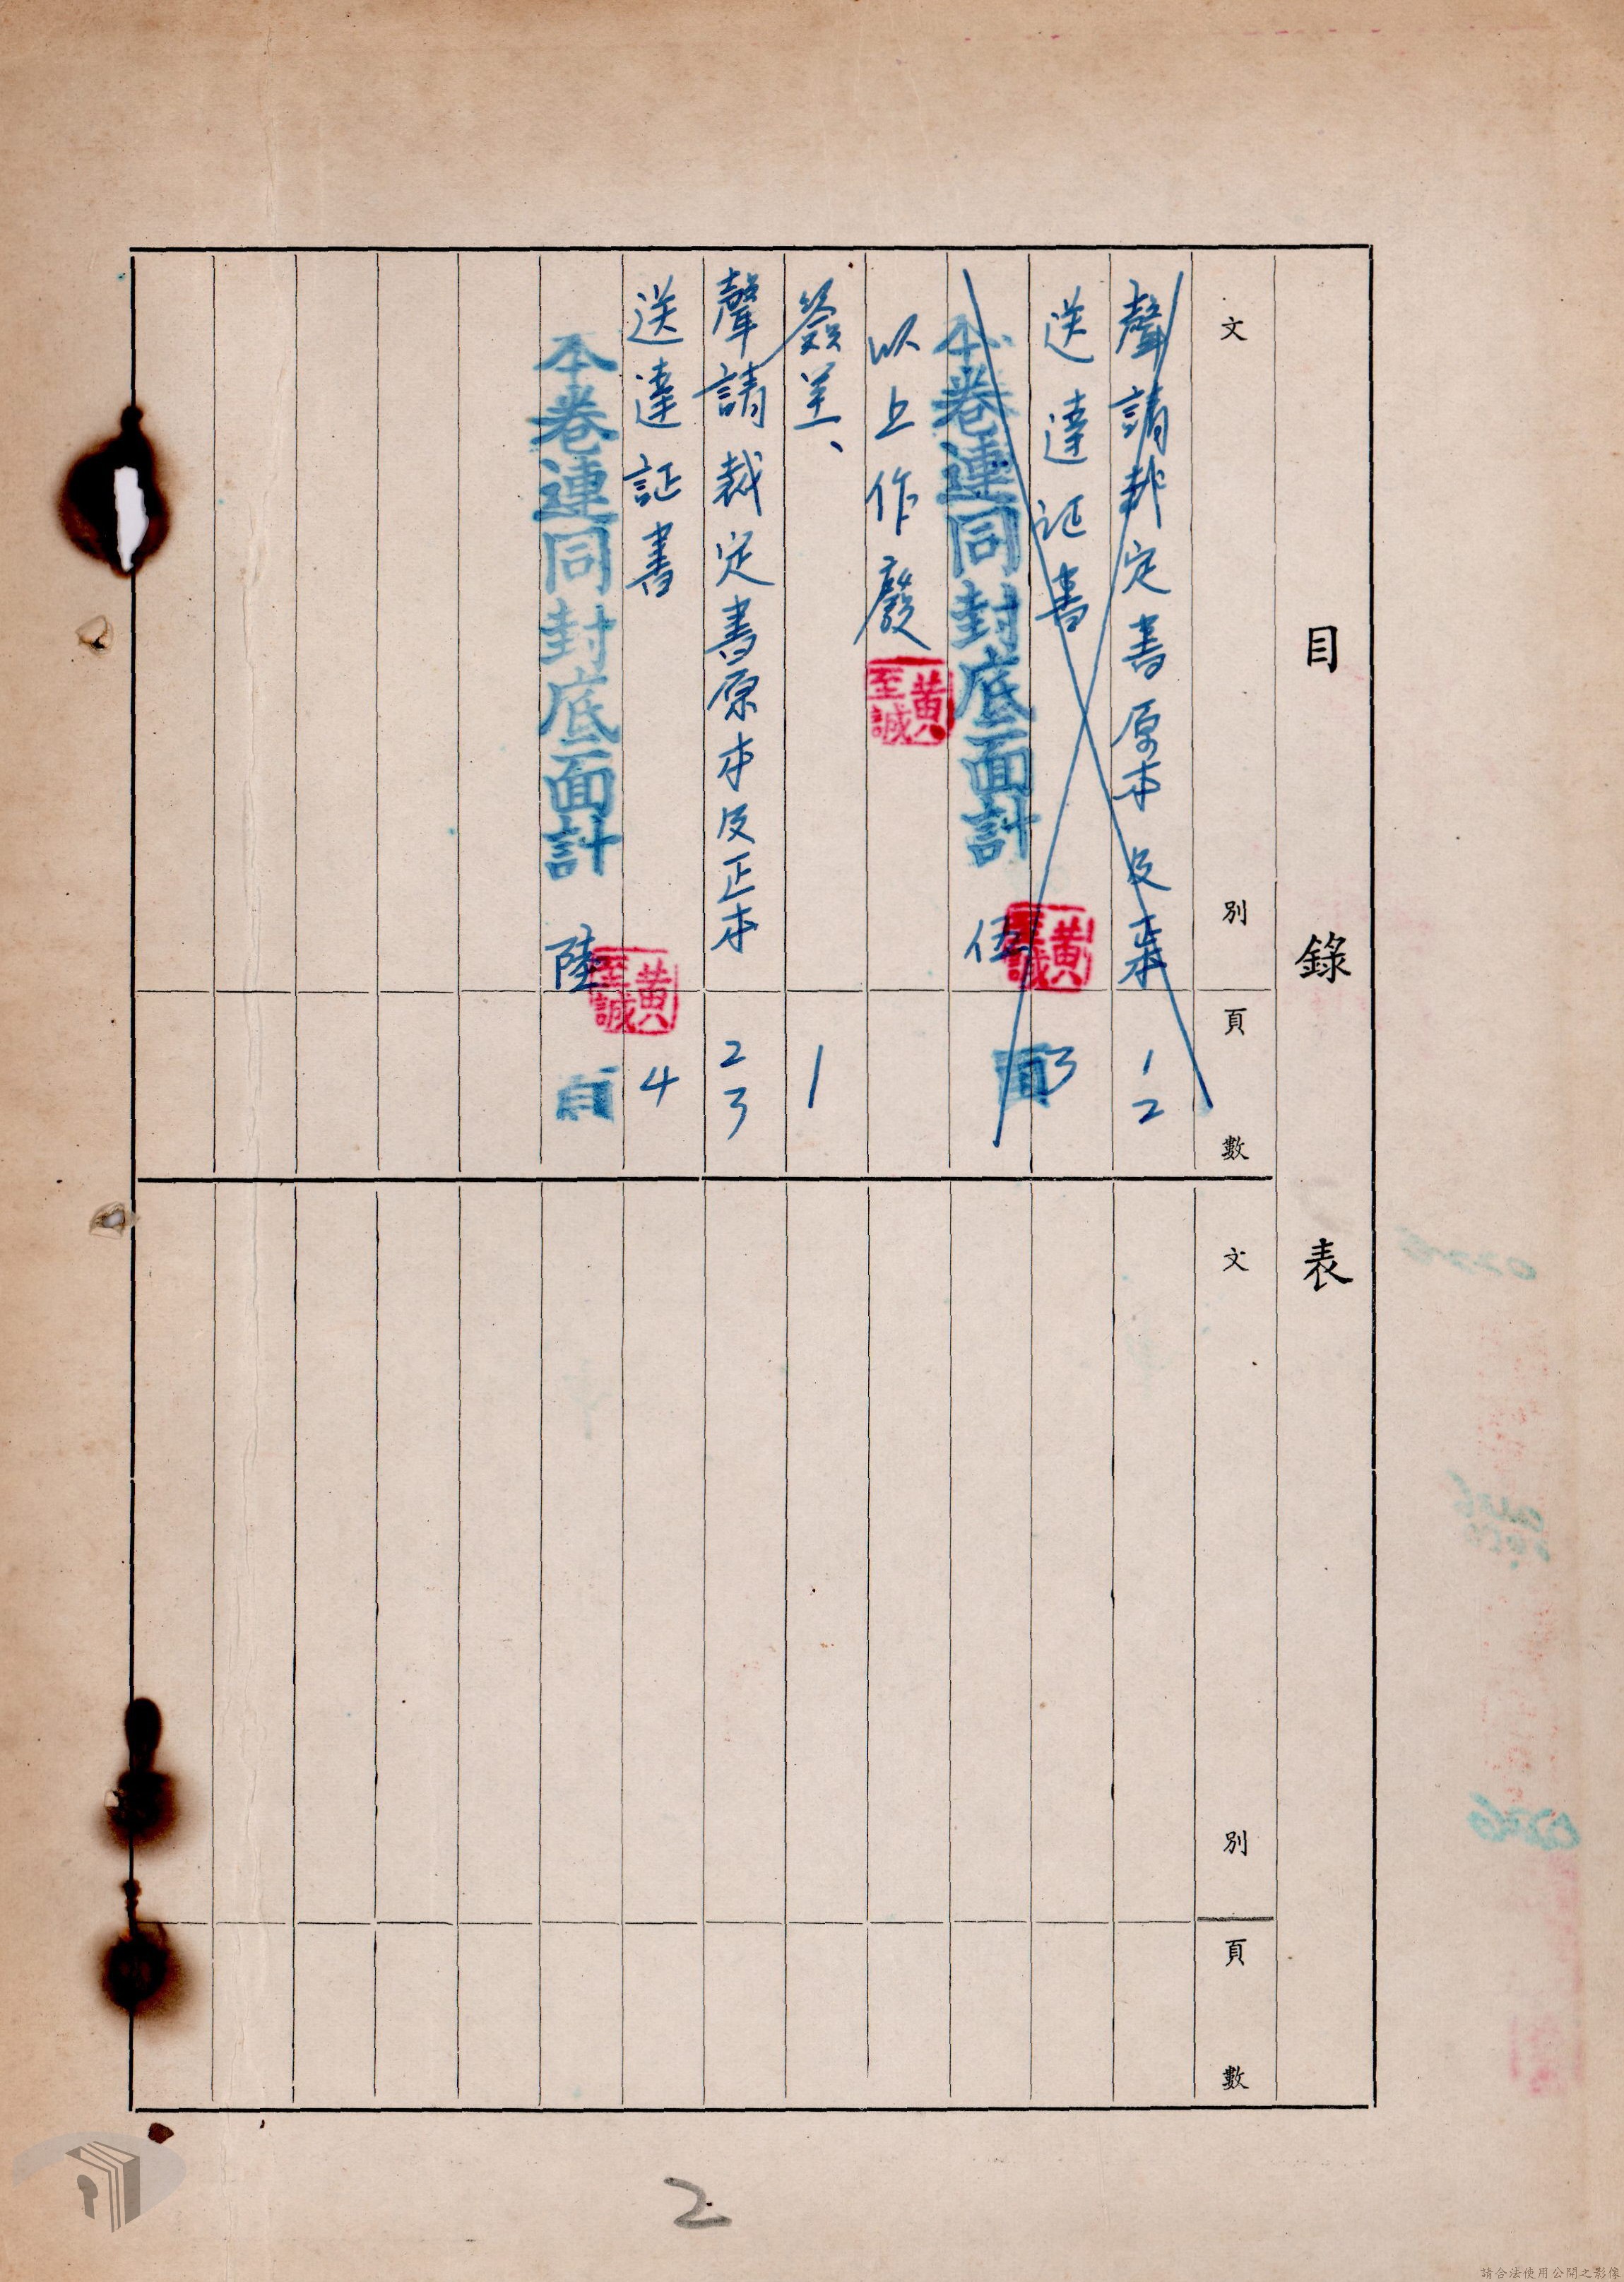 目錄表
文別 頁數
聲請裁定書原本及 1 2
送達证書 3
本卷連同封底面計 伍 頁
黃至誠
以上作廢
黃至誠
簽呈、 1
聲請裁定書原本及正本 2 3
送達証書 4
本卷連同封底面計 陸 頁
黃至誠
文別 頁數
2
請合法使用公開之影像